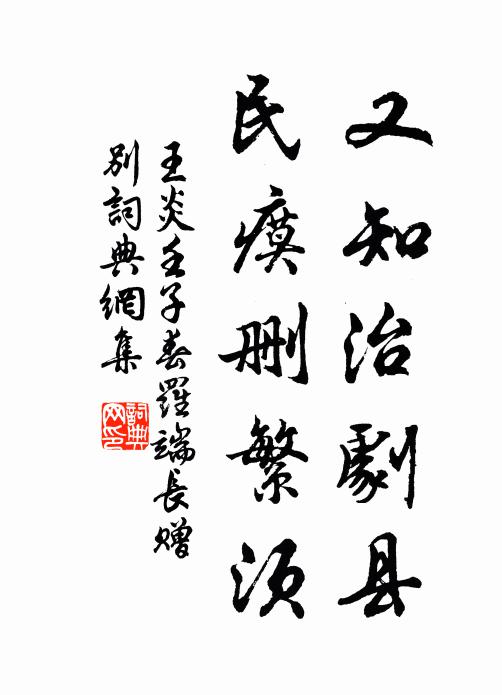 又知治劇县
民瘼删繁须
王炎壬子春羅端長贈
别詞典網集
詞典网印